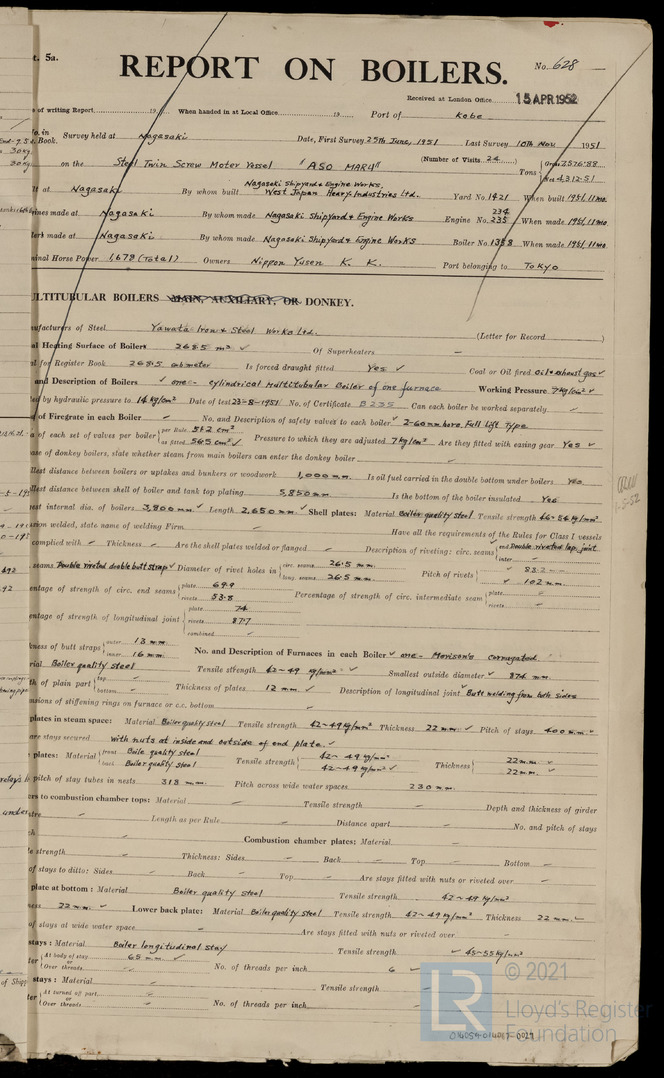 t. 5a.
REPORT ON BOILERS.
No. 628
Received at London Office 15 APR 1952
s of writing Report 19 When handed in at Local Office 19 Port of Kobe
Survey held at Nagasaki Date, First Survey 25th June, 1951 Last Survey 10th Nov 1951
Book.
(Number of Visits 24)
on the Steel Twin Screw Motor Vessel "ASO MARU" Tons Gross 7576.88 Net 4312.51
lt at Nagasaki By whom built Nagasaki Shipyard & Engine Works, West Japan Heavy-Industries Ltd. Yard No. 1421 When built 1951.11mo
ines made at Nagasaki By whom made Nagasaki Shipyard & Engine Works Engine No. 234 235 When made 1951.11mo
lers made at Nagasaki By whom made Nagasaki Shipyard & Engine Works Boiler No. 1358 When made 1951.11mo
minal Horse Power 1,678 (Total) Owners Nippon Yusen K. K. Port belonging to Tokyo
ULTITUBULAR BOILERS MAIN, AUXILIARY, OR DONKEY.
nufacturers of Steel Yawata Iron & Steel Works Ltd. (Letter for Record )
al Heating Surface of Boilers 268.5 m² ✓ Of Superheaters –
al for Register Book 268.5 Is forced draught fitted Yes ✓ Coal or Oil fired Oil & exhaust gas ✓
and Description of Boilers ✓ one - cylindrical Multitubular Boiler of one furnace Working Pressure 7 kg/cm² ✓
ted by hydraulic pressure to 14 kg/cm² Date of test 23-8-1951 No. of Certificate B 235 Can each boiler be worked separately –
of Firegrate in each Boiler – No. and Description of safety valves to each boiler ✓ 2-60mm bore, Full Lift Type
a of each set of valves per boiler per Rule 51.2 cm² as fitted 56.5 cm² ✓ Pressure to which they are adjusted 7 kg/cm² Are they fitted with easing gear Yes ✓
ase of donkey boilers, state whether steam from main boilers can enter the donkey boiler –
llest distance between boilers or uptakes and bunkers or woodwork 1,000 mm. Is oil fuel carried in the double bottom under boilers Yes.
llest distance between shell of boiler and tank top plating 5,850 mm Is the bottom of the boiler insulated Yes
est internal dia. of boilers 3,800 mm. ✓ Length 2,650 mm. ✓ Shell plates: Material Boiler quality steel Tensile strength 46~54 kg/mm²
sion welded, state name of welding Firm – Have all the requirements of the Rules for Class I vessels
complied with – Thickness – Are the shell plates welded or flanged – Description of riveting: circ. seams end Double riveted lap joint inter –
. seams Double riveted double butt strap ✓ Diameter of rivet holes in circ. seams 26.5 mm. long. seams 26.5 mm. Pitch of rivets ✓ 83.2 mm ✓ 102 mm.
entage of strength of circ. end seams plate 69.9 rivets 53.8 Percentage of strength of circ. intermediate seam plate – rivets –
entage of strength of longitudinal joint plate 74 rivets 87.7 combined –
kness of butt straps outer 13 mm inner 16 mm No. and Description of Furnaces in each Boiler ✓ one - Morison's corrugated.
rial Boiler quality steel Tensile strength 42~49 kg/mm² ✓ Smallest outside diameter ✓ 874 mm.
th of plain part top – bottom – Thickness of plates 12 mm. ✓ Description of longitudinal joint Butt welding from both sides
nsions of stiffening rings on furnace or c.c. bottom –
plates in steam space: Material Boiler quality steel Tensile strength 42~49 kg/mm² Thickness 22 mm ✓ Pitch of stays 400 mm. ✓
are stays secured with nuts at inside and outside of end plate. ✓
plates: Material front Boile quality steel back Boiler quality steel Tensile strength 42~ 49 kg/mm² 42~49 kg/mm² ✓ Thickness 22 mm. ✓ 22 mm. ✓
pitch of stay tubes in nests 318 mm. Pitch across wide water spaces 230 mm.
ers to combustion chamber tops: Material – Tensile strength – Depth and thickness of girder
tre – Length as per Rule – Distance apart – No. and pitch of stays
ch – Combustion chamber plates: Material –
le strength – Thickness: Sides – Back – Top – Bottom –
of stays to ditto: Sides – Back – Top – Are stays fitted with nuts or riveted over –
plate at bottom: Material Boiler quality steel Tensile strength 42~49 kg/mm²
ness 22 mm. ✓ Lower back plate: Material Boiler quality steel Tensile strength 42~49 kg/mm² Thickness 22 mm. ✓
of stays at wide water space – Are stays fitted with nuts or riveted over –
stays: Material Boiler longitudinal stay Tensile strength ✓ 45~55 kg/mm²
ter At body of stay 65 mm. ✓ or Over threads – No. of threads per inch 6 ✓
stays: Material – Tensile strength –
ter At turned off part – or Over threads – No. of threads per inch –
© 2021
LR
Lloyd's Register
Foundation